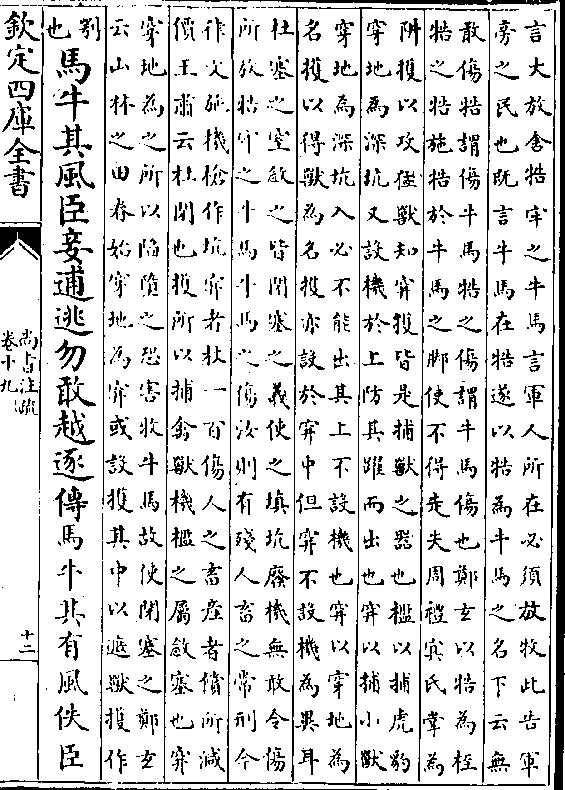 言大放舍牿牢之牛馬言軍人所在必須放牧此告軍
旁之民也既言牛馬在牿遂以牿為牛馬之名下云無
敢傷牿謂傷牛馬牿之傷謂牛馬傷也鄭玄以牿為桎
牿之牿施牿於牛馬之脚使不得走失周禮㝠氏掌為
阱擭以攻猛獸知穽擭皆是捕獸之器也檻以捕虎豹
穿地為深坑又設機於上防其躍而出也穽以捕小獸
穿地為深坑入必不能出其上不設機也穽以穿地為
名擭以得獸為名擭亦設於穽中但穽不設機為異耳
杜塞之窒斂之皆閉塞之義使之填坑廢機無敢令傷
所放牿牢之牛馬牛馬之傷汝則有殘人畜之常刑今
律文施機槍作坑穽者杖一百傷人之畜產者償所減
價王肅云杜閉也擭所以捕禽獸機檻之屬斂塞也穽
穿地為之所以陷墮之恐害牧牛馬故使閉塞之鄭玄
云山林之田春始穿地為穽或設擭其中以遮獸擭作
也馬牛其風臣妾逋逃勿敢越逐傳馬牛其有風佚臣
欽定四庫全書
尚書注疏
卷十九
十二